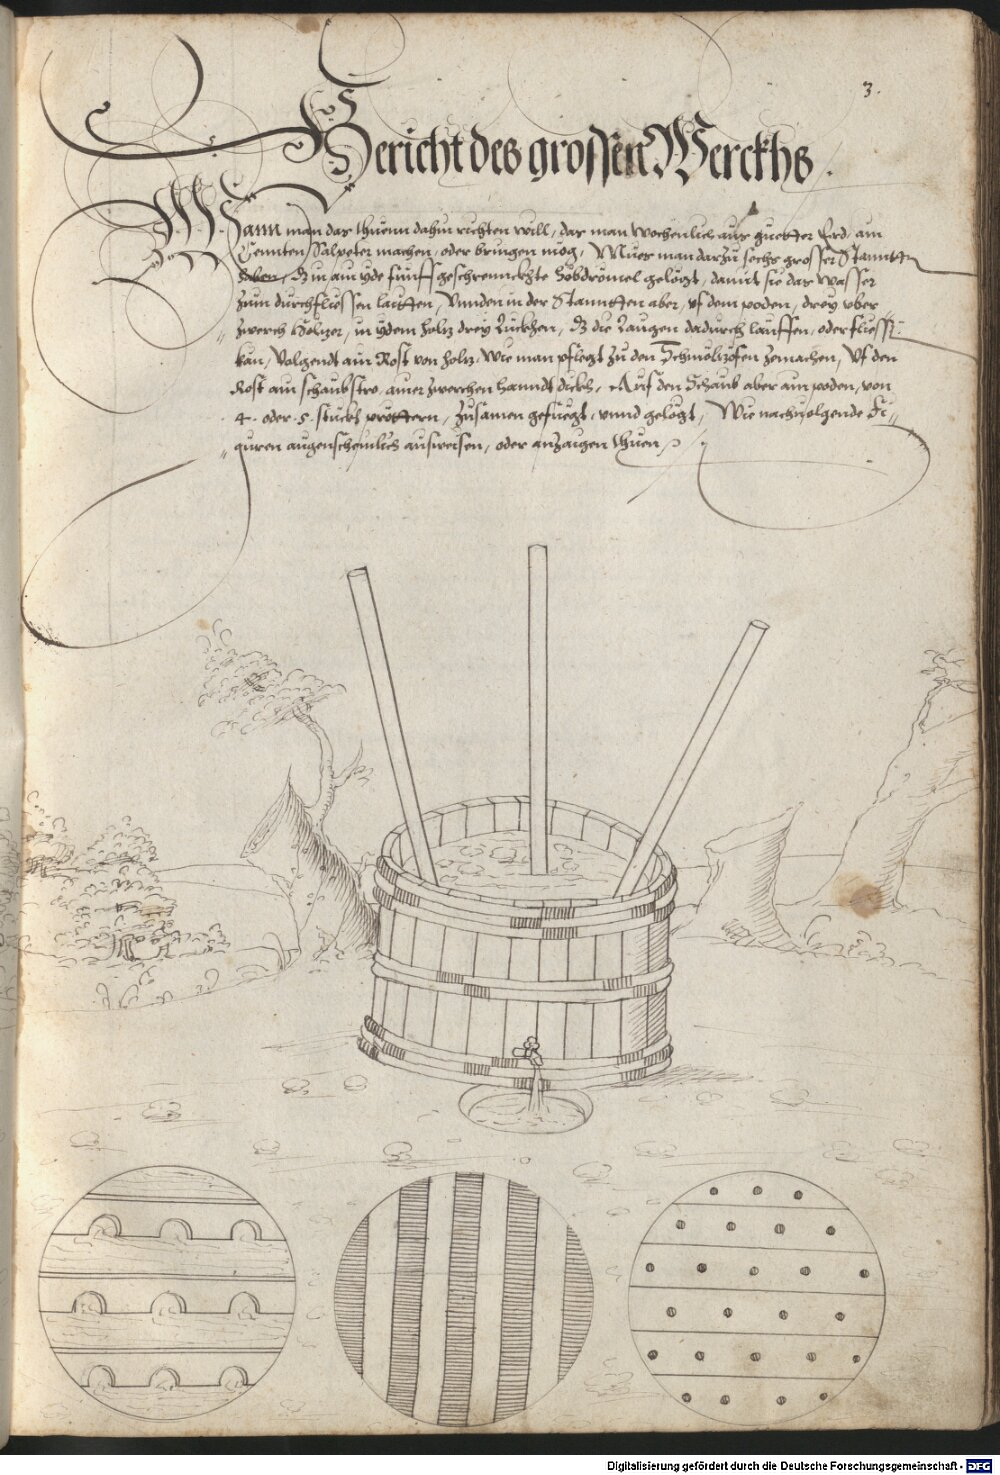 3.
Bericht des grossen Werckhs.
Wann man das thuenn dahin richten will, das man wochenlich aus guetter Erd, ain
Cenntten Salpeter machen, oder bringen mög, Mues man darzu sechs grosser Stanntten
haben, in ain yde fünff geschrennckhte gelögt, damit sie das wasser
zum durchfliessen leutten, Vnnden in der Stanntten aber, vf dem poden, drey vber
zwerch Höltzer, in ydem holtz drey Luckhen, die Laugen dadurch lauffen, oder fliessn
kan, Volgendt ain Rost von holtz, wie man pflegt zu den Schmöltzöfen zemachen, Vf den
Rost ain schaubstro, ainer zwerchen hanndt dickh, Auf den Schaub aber ain poden, von
4. oder .5. stuckh pröttern, zusamen gefüegt, vnnd gelögt, Wie nachuolgende Fi-
guren augenscheinlich ausweisen, oder anzaigen thuen
Digitalisierung gefördert durch die Deutsche Forschungsgemeinschaft - DFG